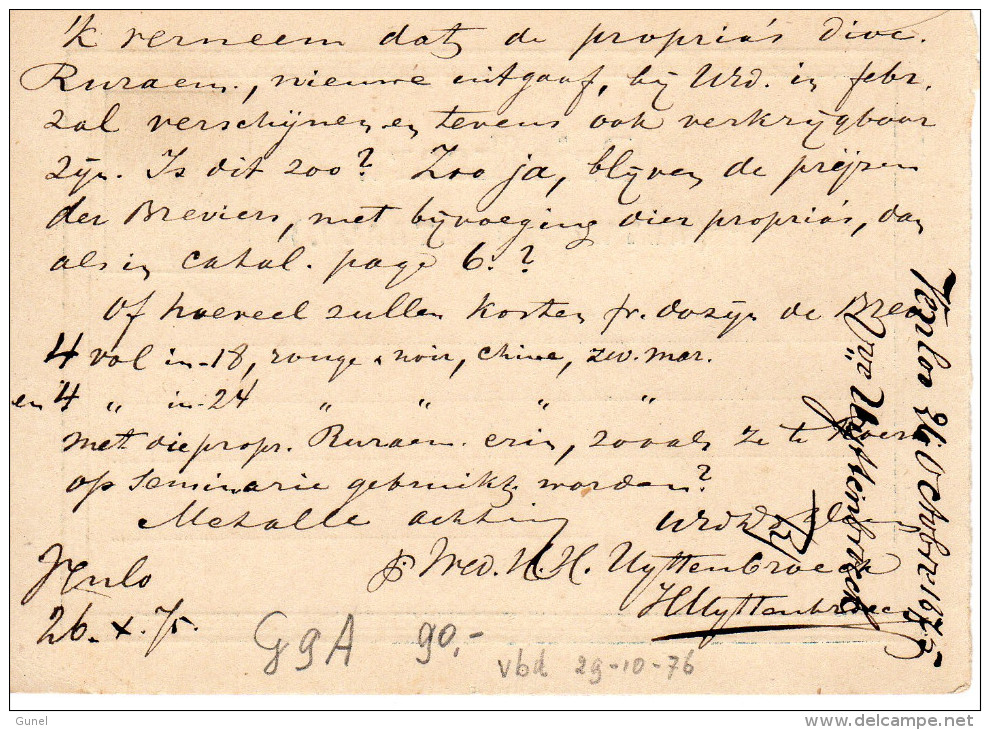 'k verneem dat de propria's dioc.
Ruraem., nieuwe uitgaaf, bij Urd. in febr.
zal verschijnen en tevens ook verkrijgbaar
zijn. Is dit zoo? Zoo ja, blijven de prijzen
der Breviers, met bijvoeging dier propria's, dan
als in catal. page 6.?
Of hoeveel zullen kosten fr. dozijn de Brev.
4 vol in-18, rouge & noir, chine, zev. mar.
en 4 " in-24 " " " "
met die propr. Ruraem. erin, zooals ze te Roerm
op Seminarie gebruikt worden?
Met alle achting UEdW Dien
p. Wed. H. H. Uyttenbroeck
HUyttenbroeck
Venlo
26. X. 75.
G9A 90,-
vbd 29-10-76
Venloo 26 October 1875
Wwe Uyttenbroeck
Gunel
www.delcampe.net